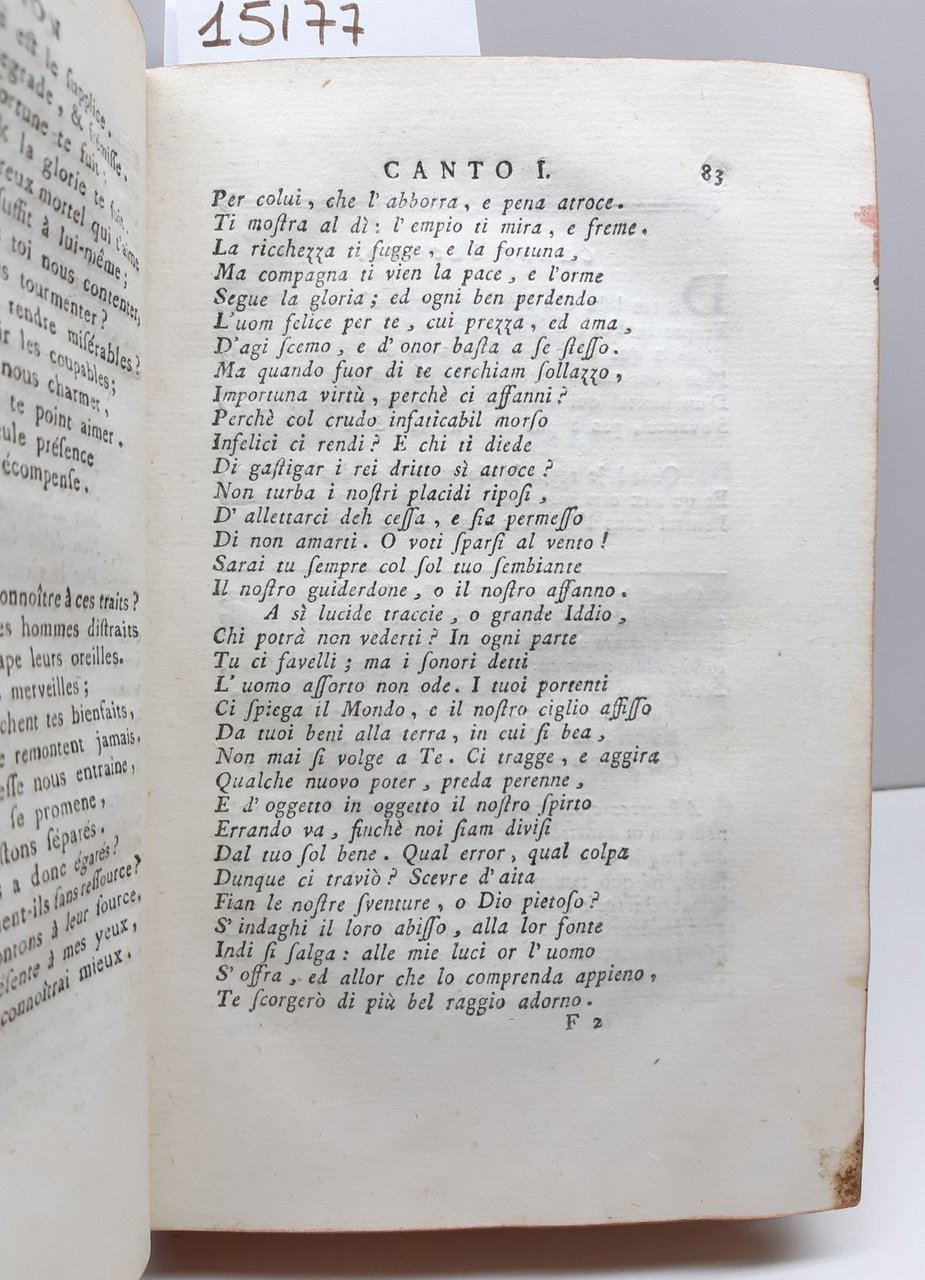 15177
ON
est le supplice.
egrade, & frémisse.
ortune te fuit.
& la gloire te suit.
reux mortel qui t'aime
suffit à lui-même;
toi nous contenter,
s tourmenter?
rendre misérables?
ir les coupables;
nous charmer,
te point aimer.
eule présence
écompense.
onnoître à ces traits?
es hommes distraits
ape leurs oreilles.
merveilles;
chent tes bienfaits,
e remontent jamais.
esse nous entraine,
se promene,
stons séparés.
s a donc égarés?
ent-ils sans ressource?
ontons à leur source,
ésente à mes yeux,
connoîtrai mieux.
CANTO I. 83
Per colui, che l'abborra, e pena atroce.
Ti moſtra al dì: l'empio ti mira, e freme.
La ricchezza ti fugge, e la fortuna,
Ma compagna ti vien la pace, e l'orme
Segue la gloria; ed ogni ben perdendo
L'uom felice per te, cui prezza, ed ama,
D'agi ſcemo, e d'onor baſta a ſe ſteſſo.
Ma quando fuor di te cerchiam ſollazzo,
Importuna virtù, perchè ci affanni?
Perchè col crudo infaticabil morſo
Infelici ci rendi? E chi ti diede
Di gaſtigar i rei dritto sì atroce?
Non turba i noſtri placidi ripoſi,
D'allettarci deh ceſſa, e ſia permeſſo
Di non amarti. O voti ſparſi al vento!
Sarai tu ſempre col ſol tuo ſembiante
Il noſtro guiderdone, o il noſtro affanno.
A sì lucide traccie, o grande Iddio,
Chi potrà non vederti? In ogni parte
Tu ci favelli; ma i ſonori detti
L'uomo aſſorto non ode. I tuoi portenti
Ci ſpiega il Mondo, e il noſtro ciglio affiſſo
Da tuoi beni alla terra, in cui ſi bea,
Non mai ſi volge a Te. Ci tragge, e aggira
Qualche nuovo poter, preda perenne,
E d'oggetto in oggetto il noſtro ſpirto
Errando va, finchè noi ſiam diviſi
Dal tuo ſol bene. Qual error, qual colpa
Dunque ci traviò? Scevre d'aita
Fian le noſtre ſventure, o Dio pietoſo?
S'indaghi il loro abiſſo, alla lor fonte
Indi ſi ſalga: alle mie luci or l'uomo
S'offra, ed allor che lo comprenda appieno,
Te ſcorgerò di più bel raggio adorno.
F 2